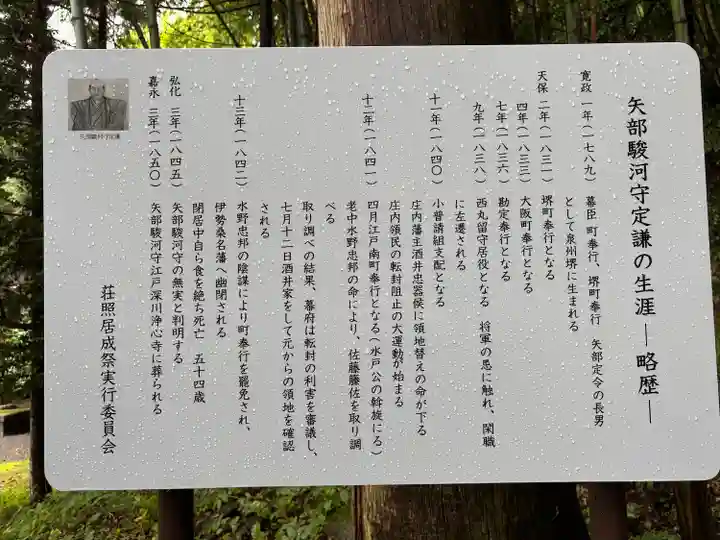 矢部駿河守定謙の生涯 ―略歴―
寛政 一年(一七八九) 幕臣 町奉行、堺町奉行 矢部定令の長男
として泉州堺に生まれる
天保 二年(一八三一) 堺町奉行となる
四年(一八三三) 大阪町奉行となる
七年(一八三六) 勘定奉行となる
九年(一八三八) 西丸留守居役となる 将軍の思に触れ、閑職
に左遷される
十一年(一八四〇) 小普請組支配となる
庄内藩主酒井忠器侯に領地替えの命が下る
庄内領民の転封阻止の大運動が始まる
十二年(一八四一) 四月江戸南町奉行となる(水戸公の斡旋にる)
老中水野忠邦の命により、佐藤藤佐を取り調
べる
取り調べの結果、幕府は転封の利害を審議し、
七月十二日酒井家をして元からの領地を確認
される
十三年(一八四二) 水野忠邦の陰謀により町奉行を罷免され、
伊勢桑名藩へ幽閉される
閉居中自ら食を絶ち死亡 五十四歳
弘化 三年(一八四五) 矢部駿河守の無実と判明する
嘉永 三年(一八五〇) 矢部駿河守江戸深川浄心寺に葬られる
荘照居成祭実行委員会
矢部駿河守定謙